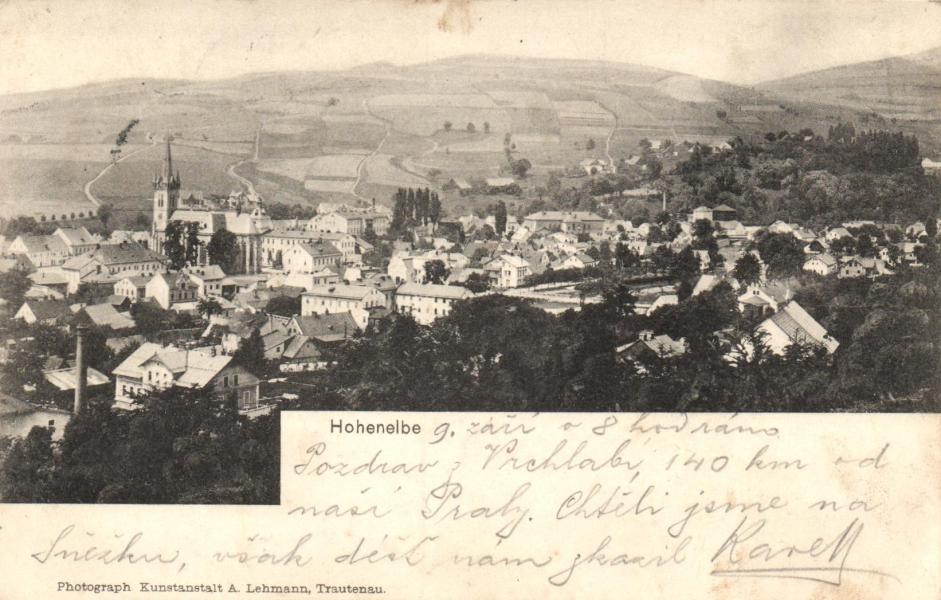 Hohenelbe 9. září o 8 hod ráno
Pozdrav z Vrchlabí, 140 km od
naší Prahy. Chtěli jsme na
Sněžku, však déšť nám zkazil Karel
Photograph Kunstanstalt A. Lehmann, Trautenau.